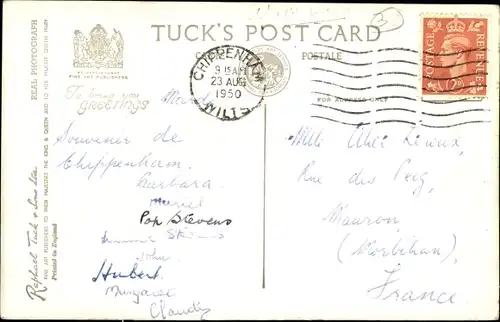 TUCK'S POST CARD
CARTE POSTALE
REAL PHOTOGRAPH
BY APPOINTMENT
FINE ART PUBLISHERS
To bring you
GREETINGS
CHIPPENHAM
9 15 AM
23 AUG
1950
WILTS
POSTAGE
REVENUE
FOR ADDRESS ONLY
Souvenir de
Chippenham.
Barbara
Muriel
Pop Stevens
John
Hubert.
Margaret
Claudy
Rue des
Mauron
(Morbihan)
France.
Raphael Tuck & Sons Ltd
FINE ART PUBLISHERS TO THEIR MAJESTIES THE KING & QUEEN AND TO HER MAJESTY QUEEN MARY
Printed in England